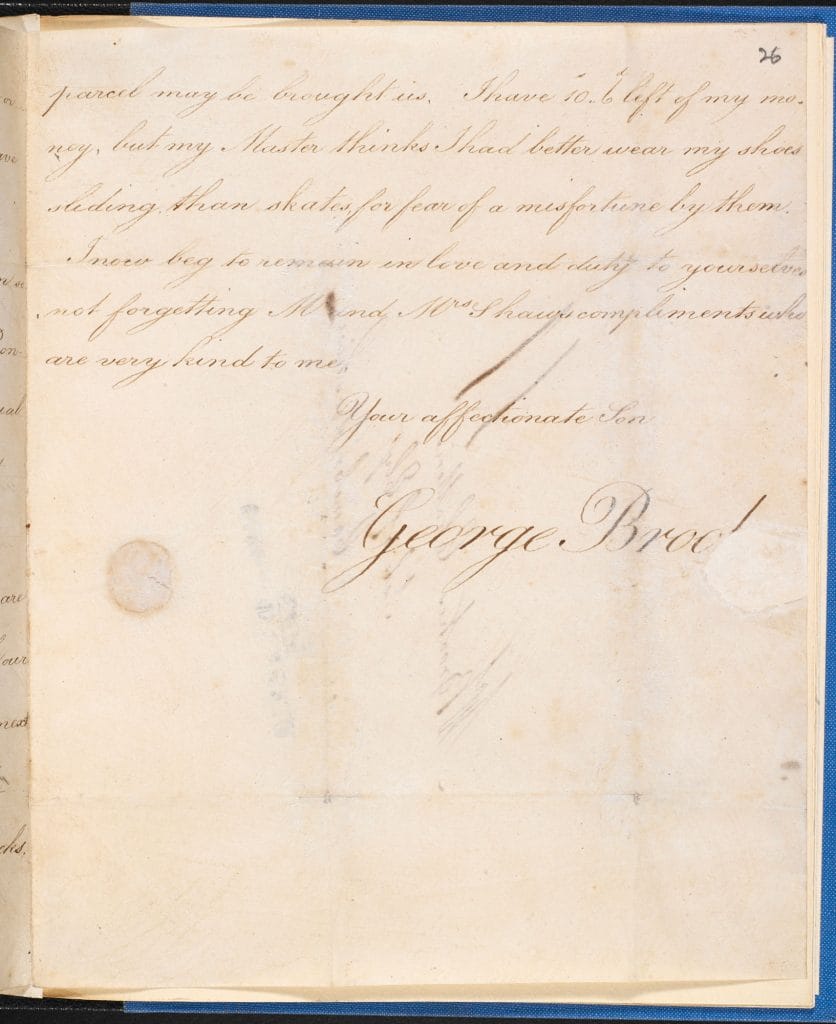 26
parcel may be brought us. I have 10.6 left of my mo-
ney, but my Master thinks I had better wear my shoes
sliding, than skates, for fear of a misfortune by them.
I now beg to remain in love and duty to yourselves
not forgetting Mr and Mrs Shaws compliments who
are very kind to me.
Your affectionate Son
George Brod